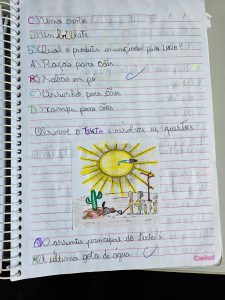 C) Uma carta
D) Um
5) Qual o produto anunciado pelo texto?
A) Ração para cães
B) Sabão em pó
C) para cães
D) Xampu para cães
Observe o texto e resolva as questões.
A) O assunto principal do texto é:
A última gota de água.